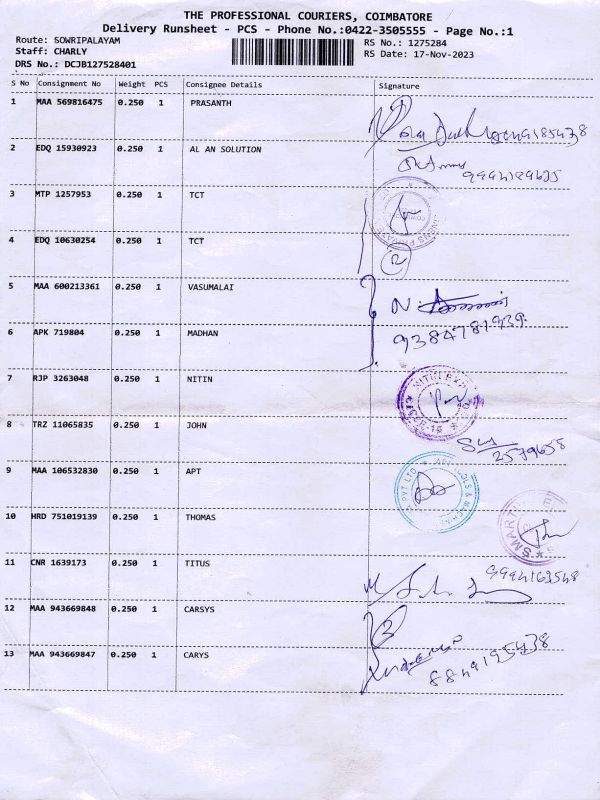 THE PROFESSIONAL COURIERS, COIMBATORE
Delivery Runsheet - PCS - Phone No.:0422-3505555 - Page No.:1
Route: SOWRIPALAYAM
Staff: CHARLY
DRS No.: DCJB127528401
RS No.: 1275284
RS Date: 17-Nov-2023
S No Consignment No Weight PCS Consignee Details Signature
1 MAA 569816475 0.250 1 PRASANTH
2 EDQ 15930923 0.250 1 AL AN SOLUTION
3 MTP 1257953 0.250 1 TCT
4 EDQ 10630254 0.250 1 TCT
2
5 MAA 600213361 0.250 1 VASUMALAI
6 APK 719804 0.250 1 MADHAN
7 RJP 3263048 0.250 1 NITIN
8 TRZ 11065835 0.250 1 JOHN
2579658
9 MAA 106532830 0.250 1 APT
10 HRD 751019139 0.250 1 THOMAS
11 CNR 1639173 0.250 1 TITUS
12 MAA 943669848 0.250 1 CARSYS
2
13 MAA 943669847 0.250 1 CARYS
8849195438